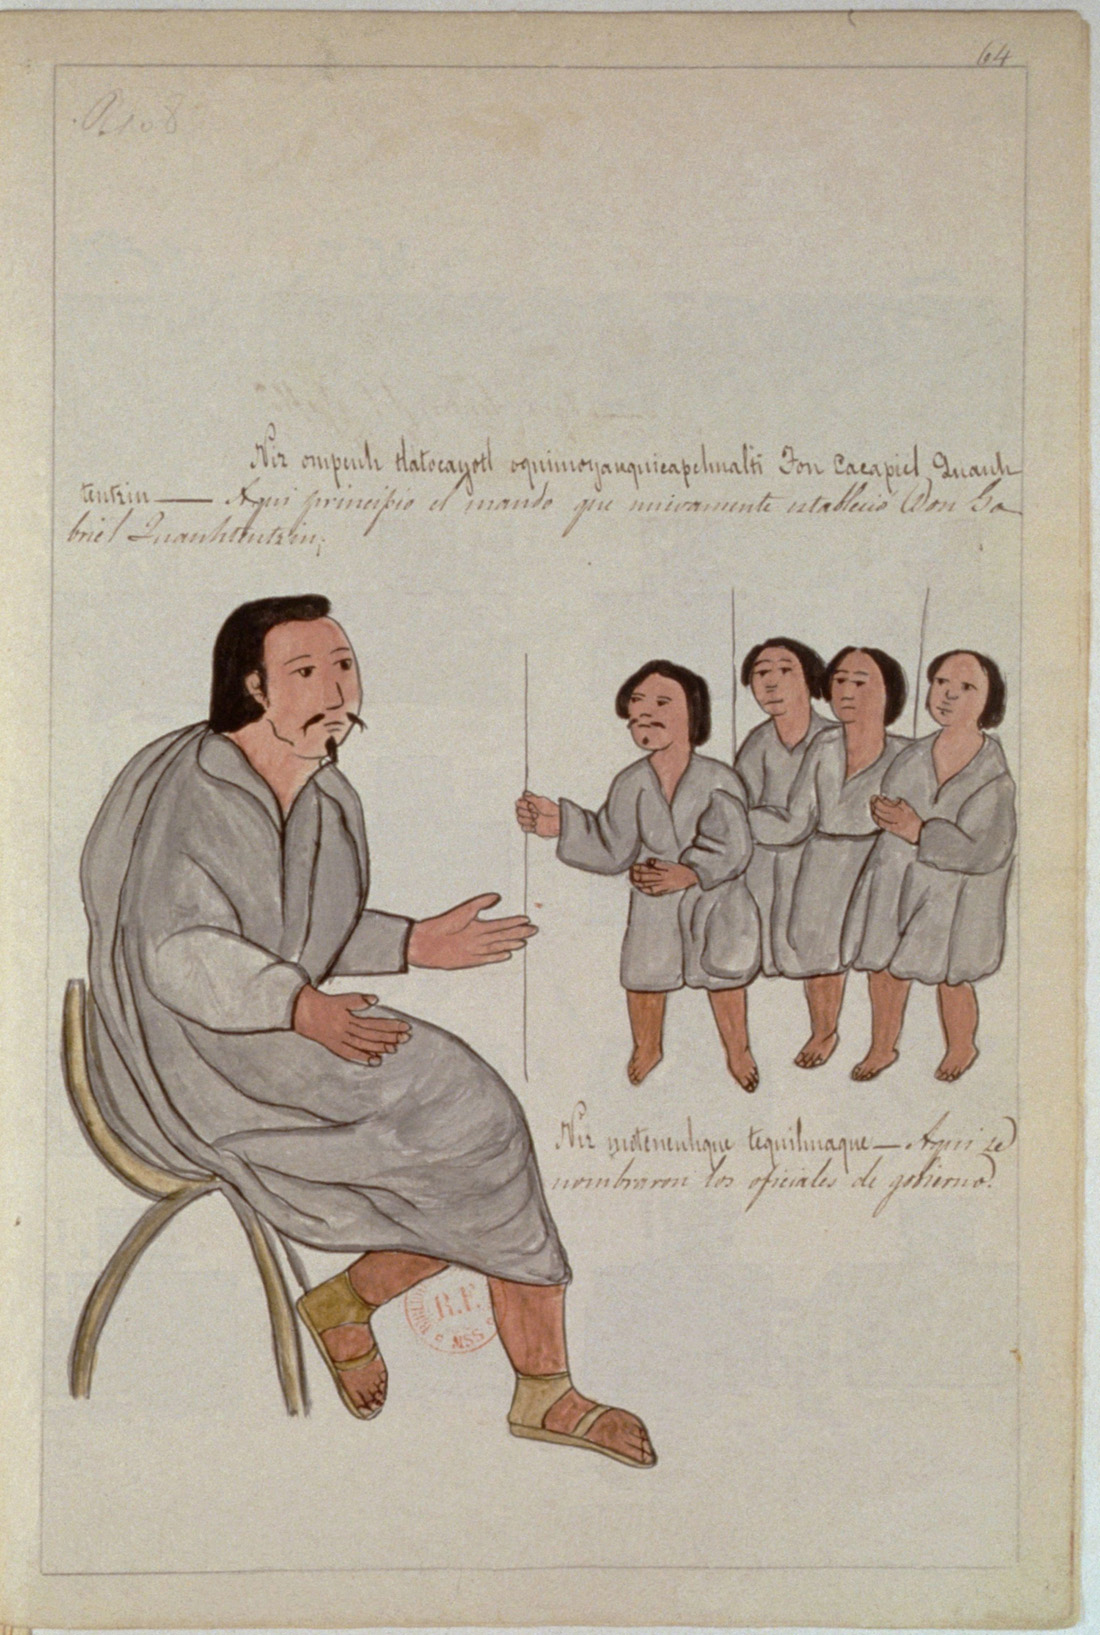 64
Niz ompeuh tlatocayotl oquimoyauquicapehualti Ton Cacapiel Quauh
tentzin — Aqui principio el mando que nuevamente estableció Don Ga
briel Quauhtentzin;
Niz moteneuhque tequihuaque — Aqui se
nombraron los oficiales de gobierno.
R.F.
MSS